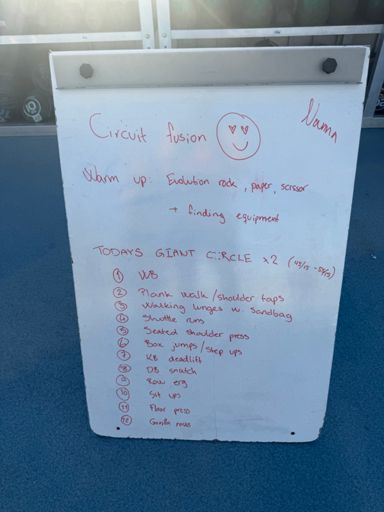 Circuit fusion
Warm up: Evolution rock, paper, scissor
→ finding equipment
TODAYS GIANT CIRCLE x2 (45/15 -
① WB
② Plank walk/shoulder taps
③ Walking lunges w. Sandbag
④ Shuttle runs
⑤ Seated shoulder press
⑥ Box jumps/step ups
⑦ KB deadlift
⑧ DB snatch
⑨ Row erg
⑩ Sit ups
⑪ Floor press
⑫